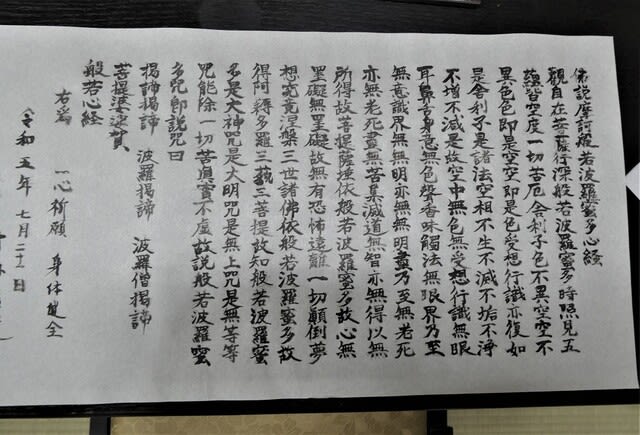 佛説摩訶般若波羅蜜多心經
觀自在菩薩行深般若波羅蜜多時照見五
蘊皆空度一切苦厄舎利子色不異空空不
異色色即是空空即是色受想行識亦復如
是舎利子是諸法空相不生不滅不垢不浄
不增不減是故空中無色無受想行識無眼
耳鼻舌身意無色聲香味觸法無眼界乃至
無意識界無無明亦無無明盡乃至無老死
亦無老死盡無苦集滅道無智亦無得以無
所得故菩提薩埵依般若波羅蜜多故心無
罣礙無罣礙故無有恐怖遠離一切顛倒夢
想究竟涅槃三世諸佛依般若波羅蜜多故
得阿耨多羅三藐三菩提故知般若波羅蜜
多是大神咒是大明咒是無上咒是無等等
咒能除一切苦真實不虚故説般若波羅蜜
多咒即説咒曰
揭諦揭諦 波羅揭諦 波羅僧揭諦
菩提娑婆賀
般若心経
右為 一心祈願 身体健全
令和五年 七月二十一日